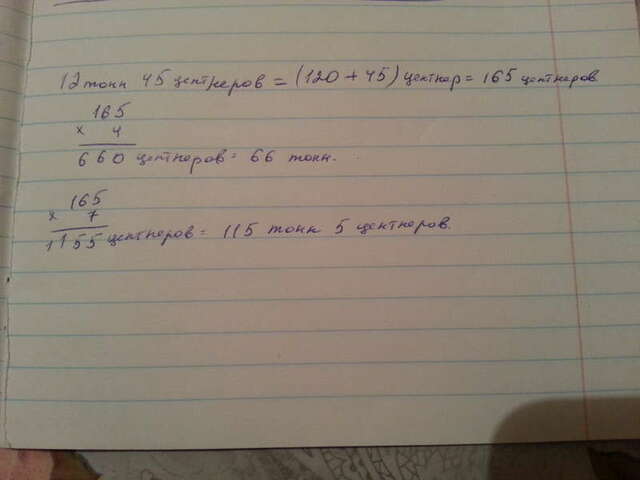 12 тонн 45 центнеров = (120 + 45) центнер = 165 центнеров.
165
x 4
660 центнеров = 66 тонн.
165
x 7
1155 центнеров = 115 тонн 5 центнеров.